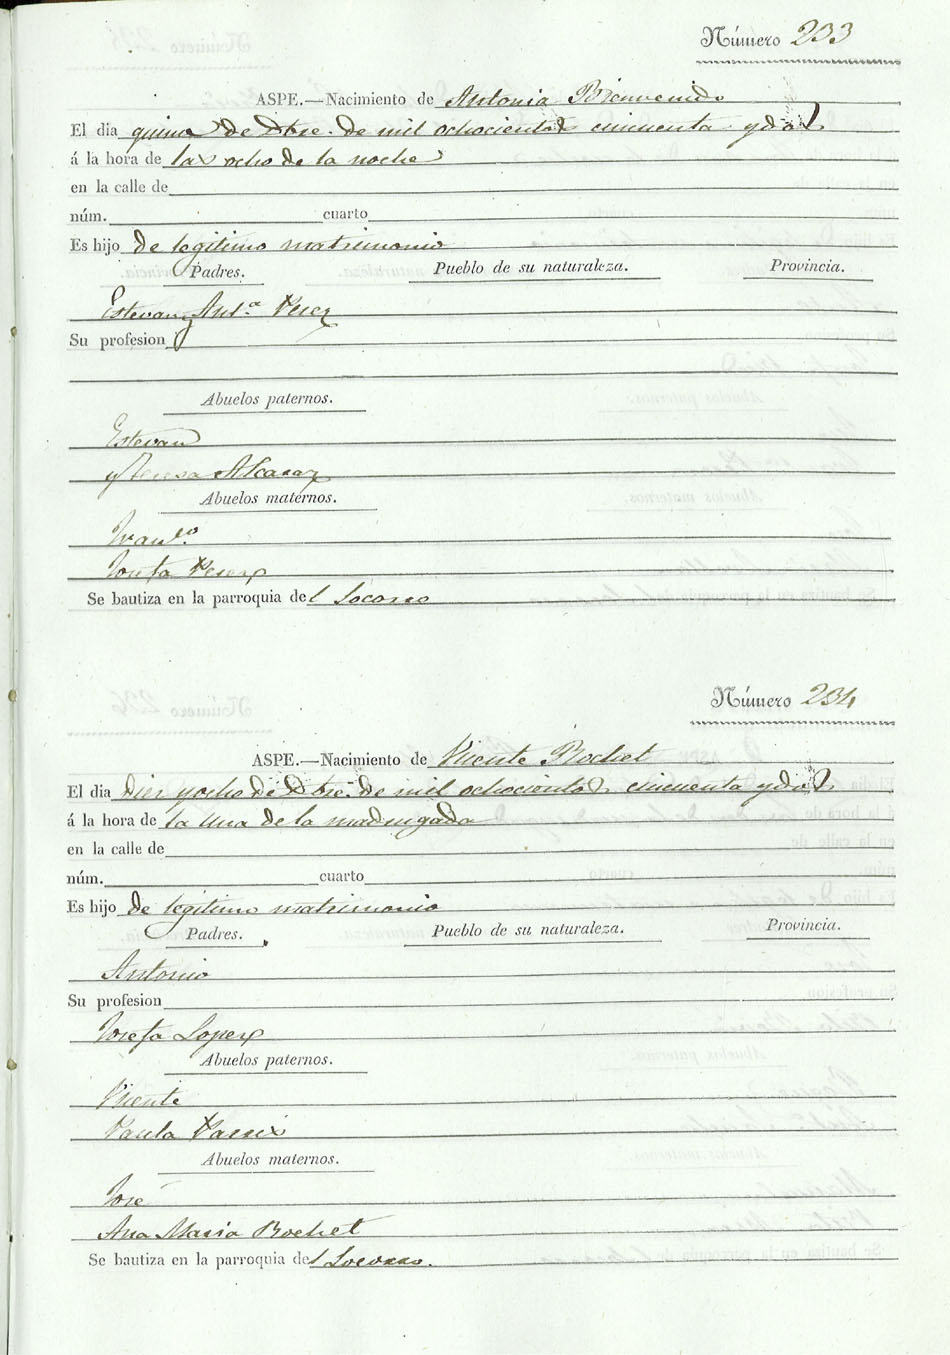 Número 233
ASPE.—Nacimiento de Antonia Bienvenido
El dia quince de Dbre. de mil ochocientos cincuenta y dos
á la hora de las ocho de la noche
en la calle de
núm. cuarto
Es hijo de legitimo matrimonio
Padres. Pueblo de su naturaleza. Provincia.
Estevan y Ant.ª Perez
Su profesion
Abuelos paternos.
Estevan
y Teresa Alcaraz
Abuelos maternos.
Fran.co
Josefa Perez
Se bautiza en la parroquia del Socorro
Número 234
ASPE.—Nacimiento de Vicente Bochet
El dia diez y ocho de Dbre. de mil ochocientos cincuenta y dos
á la hora de la una de la madrugada
en la calle de
núm. cuarto
Es hijo de legitimo matrimonio
Padres. Pueblo de su naturaleza. Provincia.
Antonio
Su profesion
Josefa Lopez
Abuelos paternos.
Vicente
Paula
Abuelos maternos.
José
Ana Maria Bochet
Se bautiza en la parroquia del Socorro.